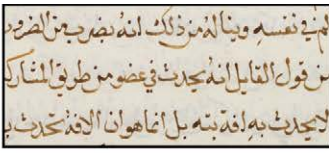 في نفسه ويناله من ذلك انه يضرب من الضرور
من قول القايل انه يحدث في عضو من طريق المشارك
لا يحدث به افة بته بل انما هو ان الافة تحدث